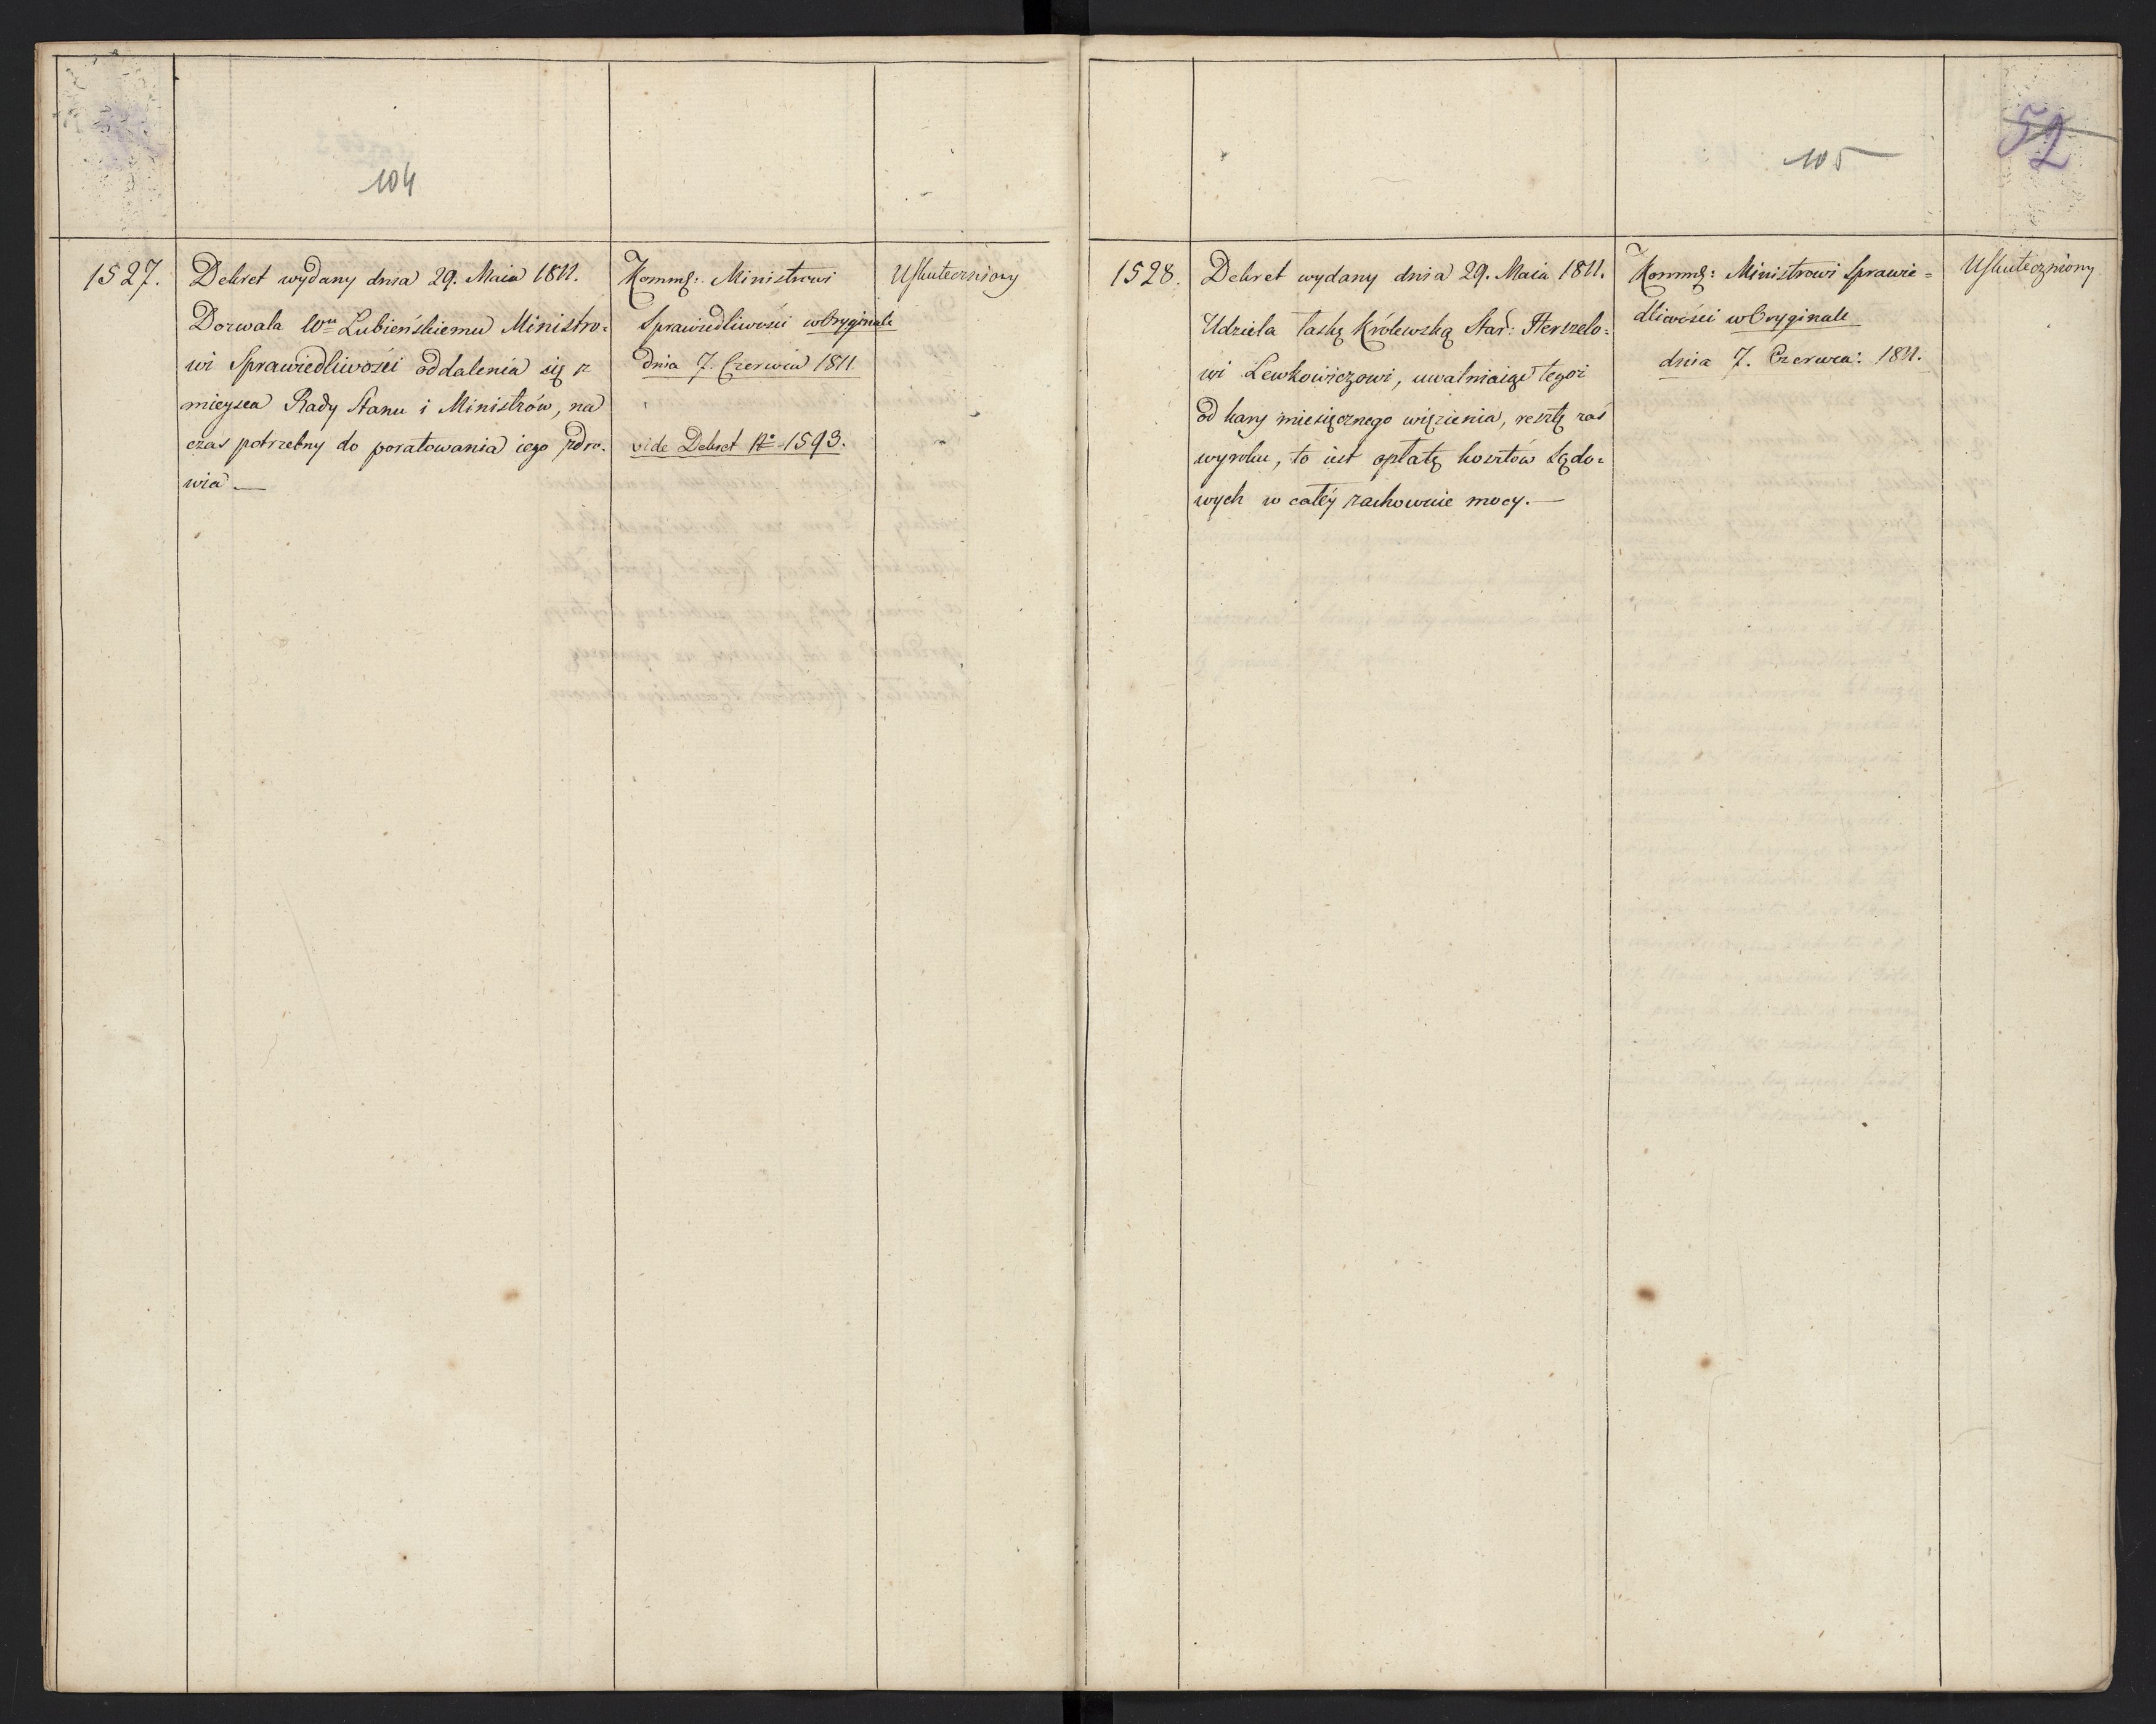 104
1527.
Dekret wydany dnia 29. Maia 1811.
Dozwala Wmu Lubieńskiemu Ministro-
wi Sprawiedliwości oddalenia się z
mieysca Rady Stanu i Ministrów, na
czas potrzebny do poratowania iego zdro-
wia —
Kommg: Ministrowi
Sprawiedliwości w Oryginale
dnia 7. Czerwca 1811
vide Dekret No 1593.
Uskuteczniony
105
52
1528.
Dekret wydany dnia 29. Maia 1811.
Udziela łaskę Królewską Star: Herszelo-
wi Lewkowiczowi, uwalniaiąc tegoż
od kary miesięcznego więzienia, resztę zaś
wyroku, to iest opłatę kosztów Sądo-
wych w całéy zachowuie mocy. —
Kommg: Ministrowi Sprawie-
dliwości w Oryginale
dnia 7. Czerwca: 1811.
Uskuteczniony